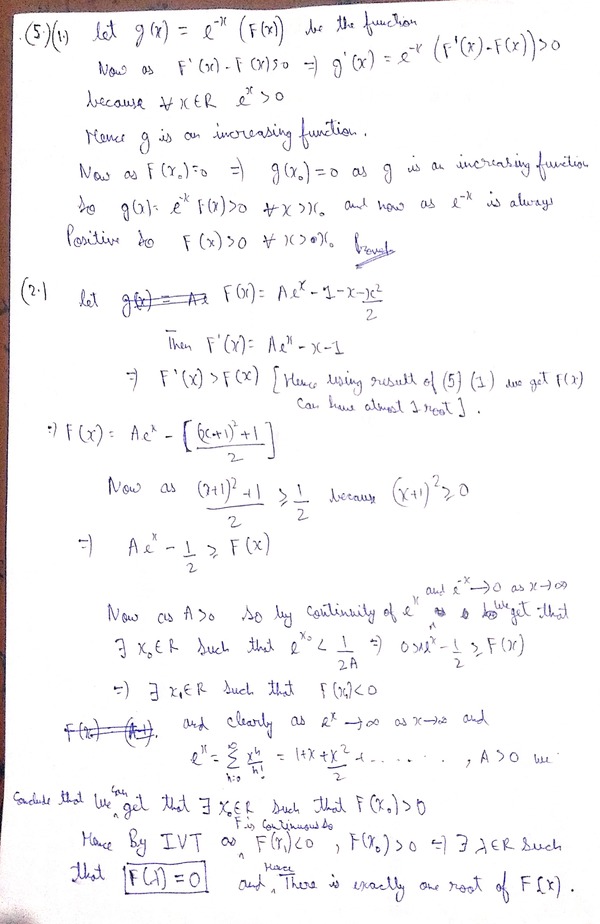 (5.)(1.) let g(x) = e^-x (F(x)) be the function
Now as F'(x) - F(x)>0 => g'(x) = e^-x (F'(x)-F(x))>0
because ∀ x∈R e^x >0
Hence g is an increasing function.
Now as F(x₀)=0 => g(x₀)=0 as g is an increasing function
So g(x)= e^-x F(x)>0 ∀ x>x₀ and now as e^-x is always
Positive So F(x)>0 ∀ x>x₀ Proved
(2.) let F(x)= Ae^x - 1 - x - x²/2
Then F'(x)= Ae^x - x - 1
=> F'(x) > F(x) [Hence using result of (5) (1) we get F(x)
can have atmost 1 root].
=> F(x)= Ae^x - [((x+1)²+1)/2]
Now as ((x+1)²+1)/2 ≥ 1/2 because (x+1)²≥0
=> Ae^x - 1/2 ≥ F(x)
and e^-x → 0 as x→∞
Now as A>0 So by continuity of e^x we get that
∃ x₀∈R Such that e^x₀ < 1/2A => 0>Ae^x - 1/2 ≥ F(x)
=> ∃ x₁∈R Such that F(x₁)<0
and clearly as e^x → ∞ as x→∞ and
e^x = Σ_{n=0}^∞ x^n/n! = 1+x+x²/2 + ........, A>0 we
Conclude that We can get that ∃ x₀∈R Such that F(x₀)>0
F is continuous So
Hence By IVT as F(x₁)<0, F(x₀)>0 => ∃ λ∈R Such
that F(λ)=0 and Hence There is exactly one root of F(x).